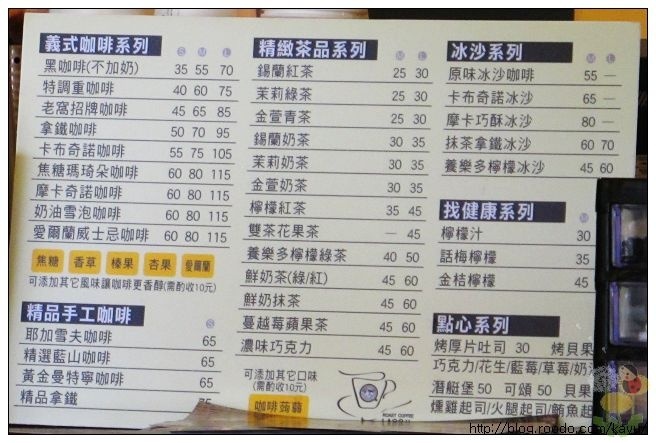 義式咖啡系列 S M L
黑咖啡(不加奶) 35 55 70
特調重咖啡 40 60 75
老窩招牌咖啡 45 65 85
拿鐵咖啡 50 70 95
卡布奇諾咖啡 55 75 105
焦糖瑪琦朵咖啡 60 80 115
摩卡奇諾咖啡 60 80 115
奶油雪泡咖啡 60 80 115
愛爾蘭威士忌咖啡 60 80 115
焦糖 香草 榛果 杏果 愛爾蘭
可添加其它風味讓咖啡更香醇(需酌收10元)
精品手工咖啡 S
耶加雪夫咖啡 65
精選藍山咖啡 65
黃金曼特寧咖啡 65
精品拿鐵
精緻茶品系列 M L
錫蘭紅茶 25 30
茉莉綠茶 25 30
金萱青茶 25 30
錫蘭奶茶 30 35
茉莉奶茶 30 35
金萱奶茶 30 35
檸檬紅茶 35 45
雙茶花果茶 — 45
養樂多檸檬綠茶 40 50
鮮奶茶(綠/紅) 45 60
鮮奶抹茶 45 60
蔓越莓蘋果茶 45 60
濃味巧克力 45 60
可添加其它口味
(需酌收10元)
咖啡蒟蒻
ROAST COFFEE
冰沙系列 M L
原味冰沙咖啡 55 —
卡布奇諾冰沙 65 —
摩卡巧酥冰沙 80 —
抹茶拿鐵冰沙 60 70
養樂多檸檬冰沙 45 60
找健康系列 M
檸檬汁 30
話梅檸檬 35
金桔檸檬 45
點心系列
烤厚片吐司 30 烤貝果
巧克力/花生/藍莓/草莓/奶
潛艇堡 50 可頌 50 貝果
燻雞起司/火腿起司/鮪魚起
http://blog.roodo.com/kavu